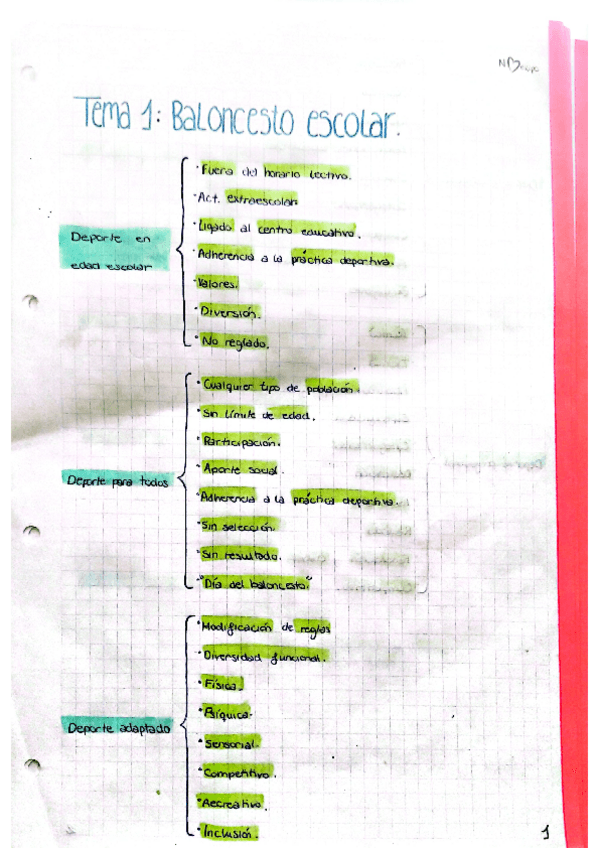 Tema 1: Baloncesto escolar.
Deporte en
edad escolar
· Fuera del horario lectivo.
· Act. extraescolar
· Ligado al centro educativo.
· Adherencia a la práctica deportiva.
· Valores.
· Diversión.
· No reglado.
Deporte para todos
· Cualquier tipo de población.
· Sin límite de edad.
· Participación.
· Aporte social.
· Adherencia a la práctica deportiva.
· Sin selección.
· Sin resultado.
· "Día del baloncesto"
Deporte adaptado
· Modificación de reglas
· Diversidad funcional.
· Física.
· Psíquica.
· Sensorial.
· Competitivo.
· Recreativo.
· Inclusión.
1